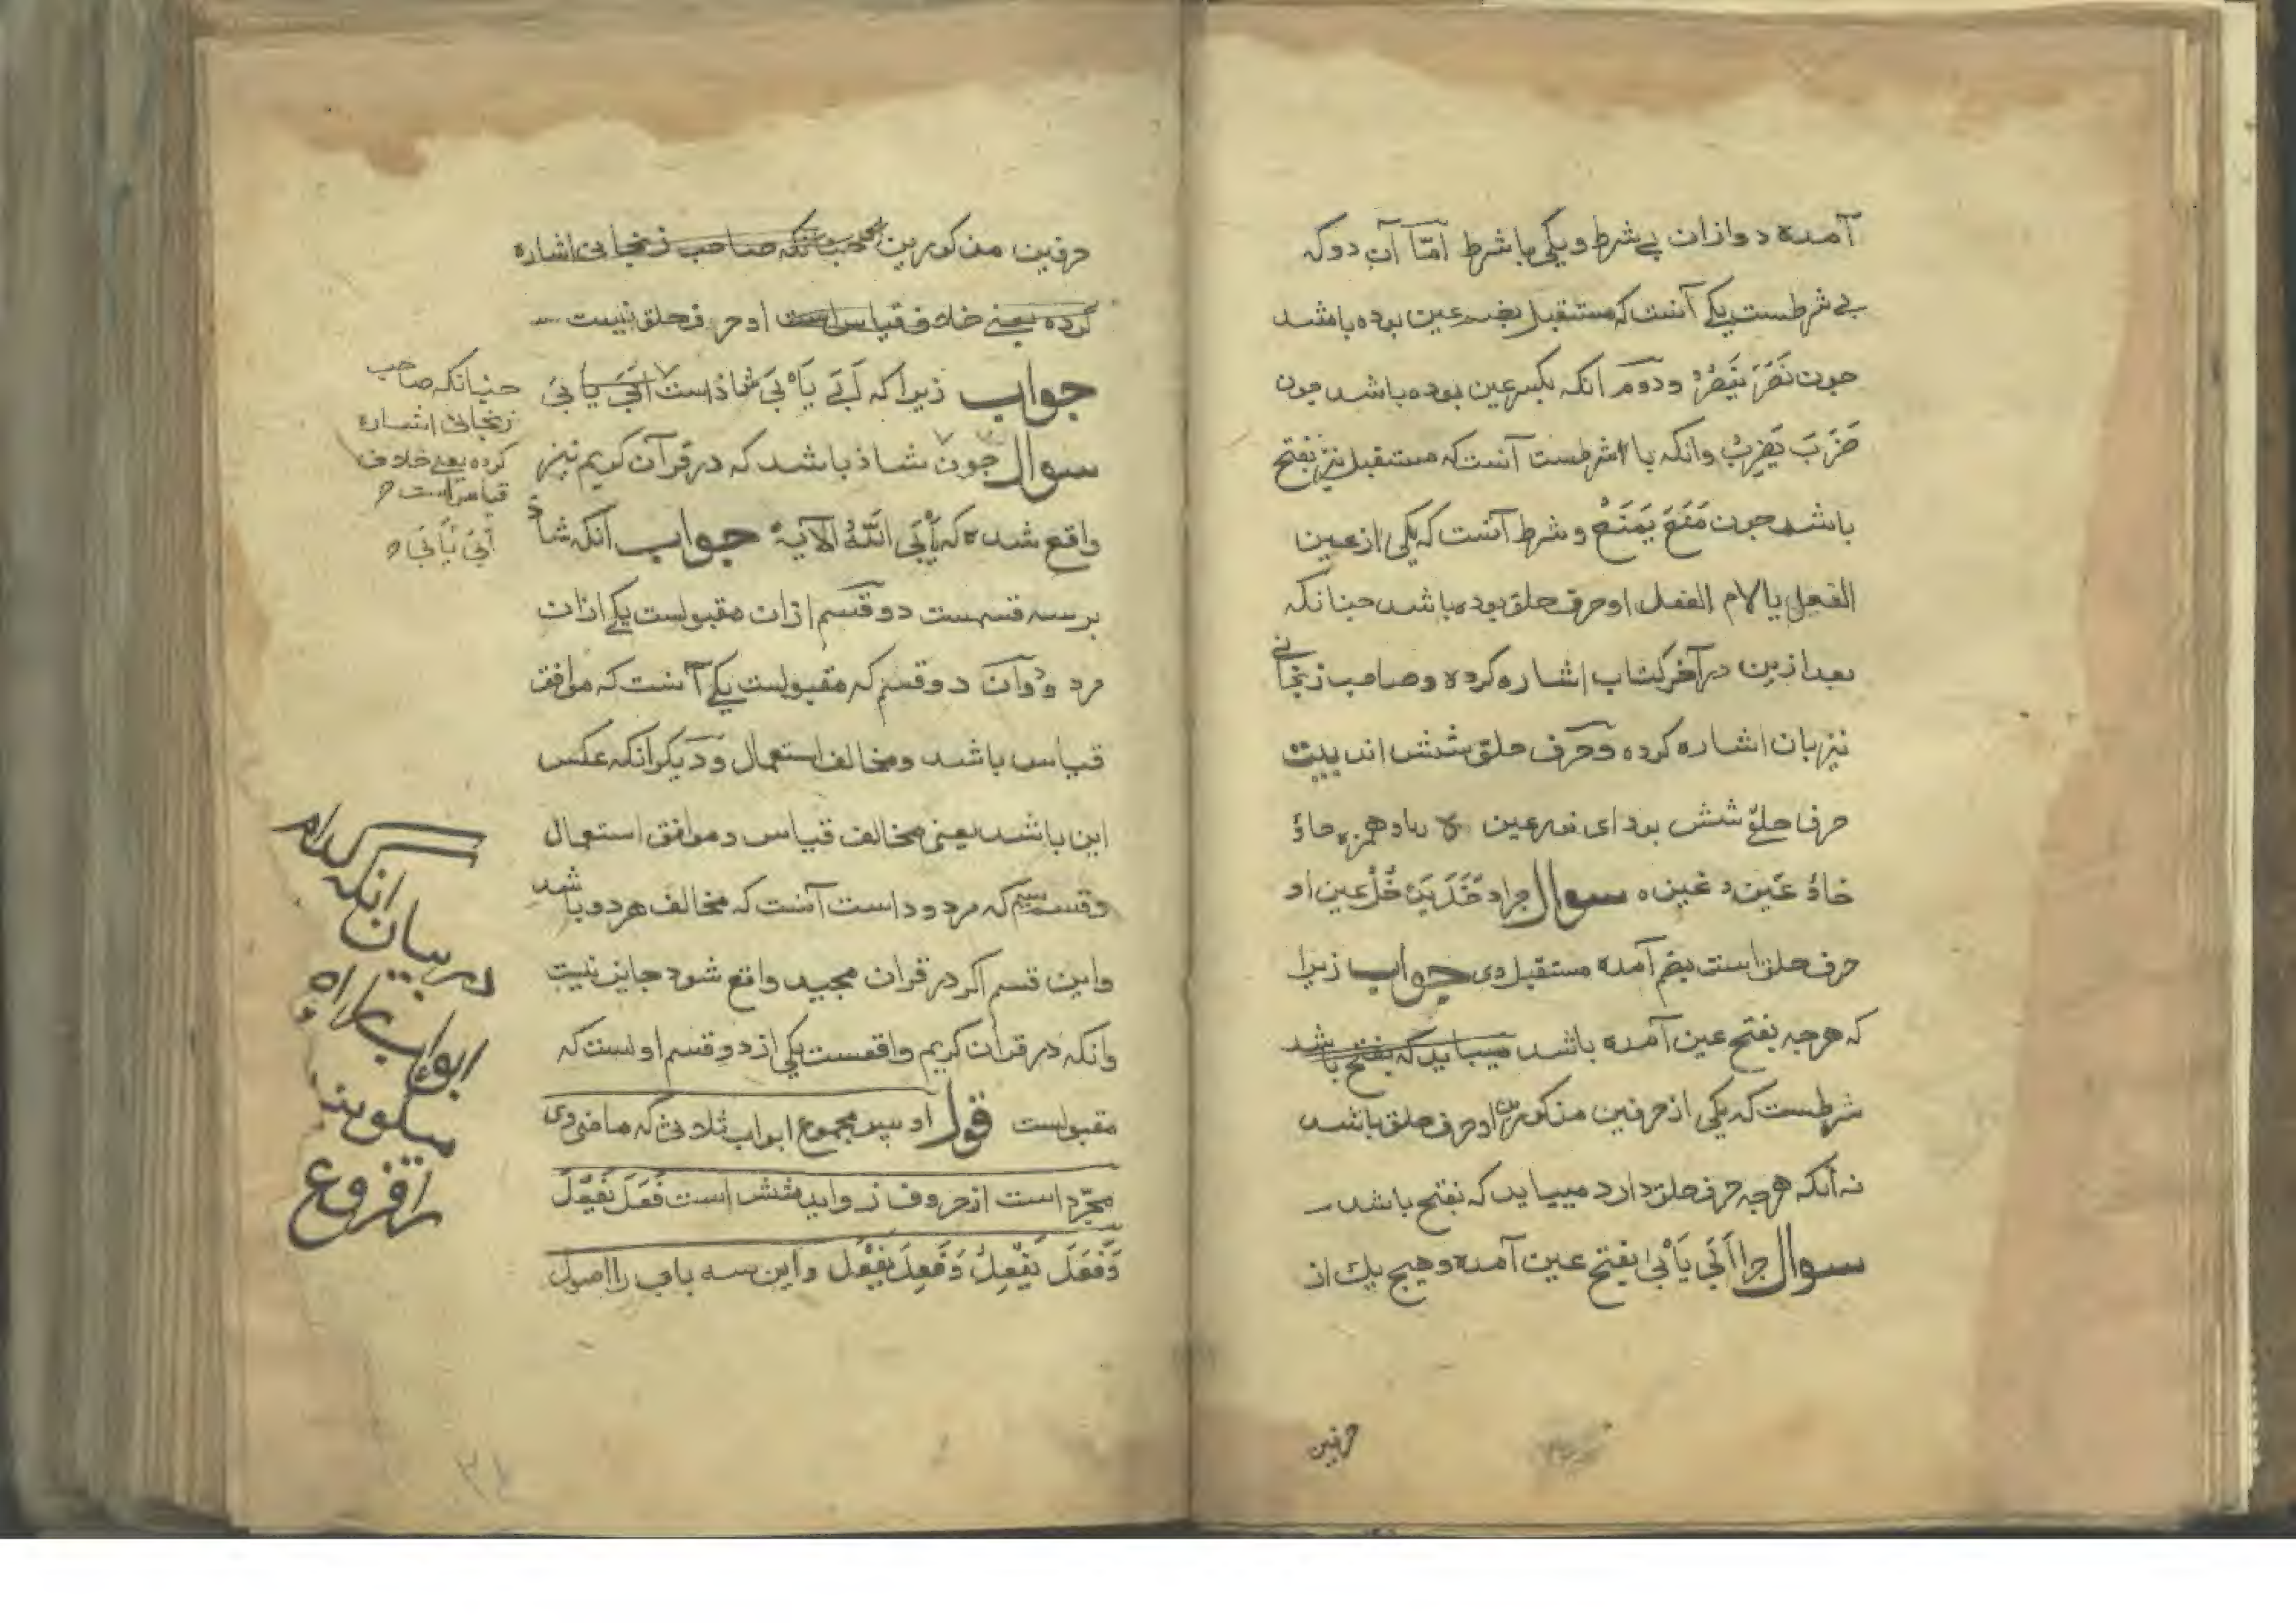 آمده دو ازان بی شرط و یکی با شرط امّا آن دو که
بی شرطست یکی آنست که مستقبل بضم عین بوده باشد
چون نَصَرَ یَنصُرُ و دوم آنکه بکسر عین بوده باشد چون
ضَرَبَ یَضرِبُ وانکه با شرطست آنست که مستقبل نیز بفتح
باشد چون مَنَعَ یَمنَعُ و شرط آنست که یکی از عین
الفعل یا لام الفعل او حرف حلق بوده باشد چنانکه
بعد ازین در آخر کتاب اشاره کرده و صاحب زنجانی
نیز بان اشاره کرده و حرف حلق شش اند بیت
حرف حلق شش بود ای نور عین همزه حاؤ
خاؤ عین و غین سوال چرا دَخَلَ یَدْخُلُ عین او
حرف حلق است بضم آمده مستقبل وی جواب زیرا
که هرچه بفتح عین آمده باشد میباید که بفتح باشد
شرطست که یکی از حرفین مذکورین او حرف حلق باشد
نه آنکه هرچه حرف حلق دارد میباید که بفتح باشد
سوال چرا اَبَی یَأْبَی بفتح عین آمده و هیچ یک از
حرفین
حرفین مذکورین چنانکه صاحب زنجانی اشاره
کرده یعنی خلاف قیاس است او حرف حلق نیست
جواب زیرا که اَبَی یَاْبَی شاذ است اَبَی یَابَی
سوال چون شاذ باشد که در قرآن کریم نیز
واقع شده که یَأْبَی اللّٰهُ الآیة جواب آنکه شاذ
بر سه قسمست دو قسم ازان مقبولست یکی ازان
مردود و آن دو قسم که مقبولست یکی آنست که موافق
قیاس باشد و مخالف استعمال و دیکر انکه عکس
این باشد یعنی مخالف قیاس و موافق استعمال
و قسم سیم که مردود است آنست که مخالف هر دو باشد
و این قسم اکر در قران مجید واقع شود جایز نیست
وانکه در قران کریم واقعست یکی از دو قسم اولست که
مقبولست قول او پس مجموع ابواب ثلاثی که ماضی وی
مجرّد است از حروف زواید شش است فَعَلَ یَفْعُلُ
وَفَعَلَ یَفْعِلُ وَفَعِلَ یَفْعَلُ و این سه باب را اصول
چنانکه صاحب
زنجانی اشاره
کرده یعنی خلاف
قیاس است
اَبَی یَأْبَی
در بیان انکه کدام
ابواب را
میکویند
را فروع